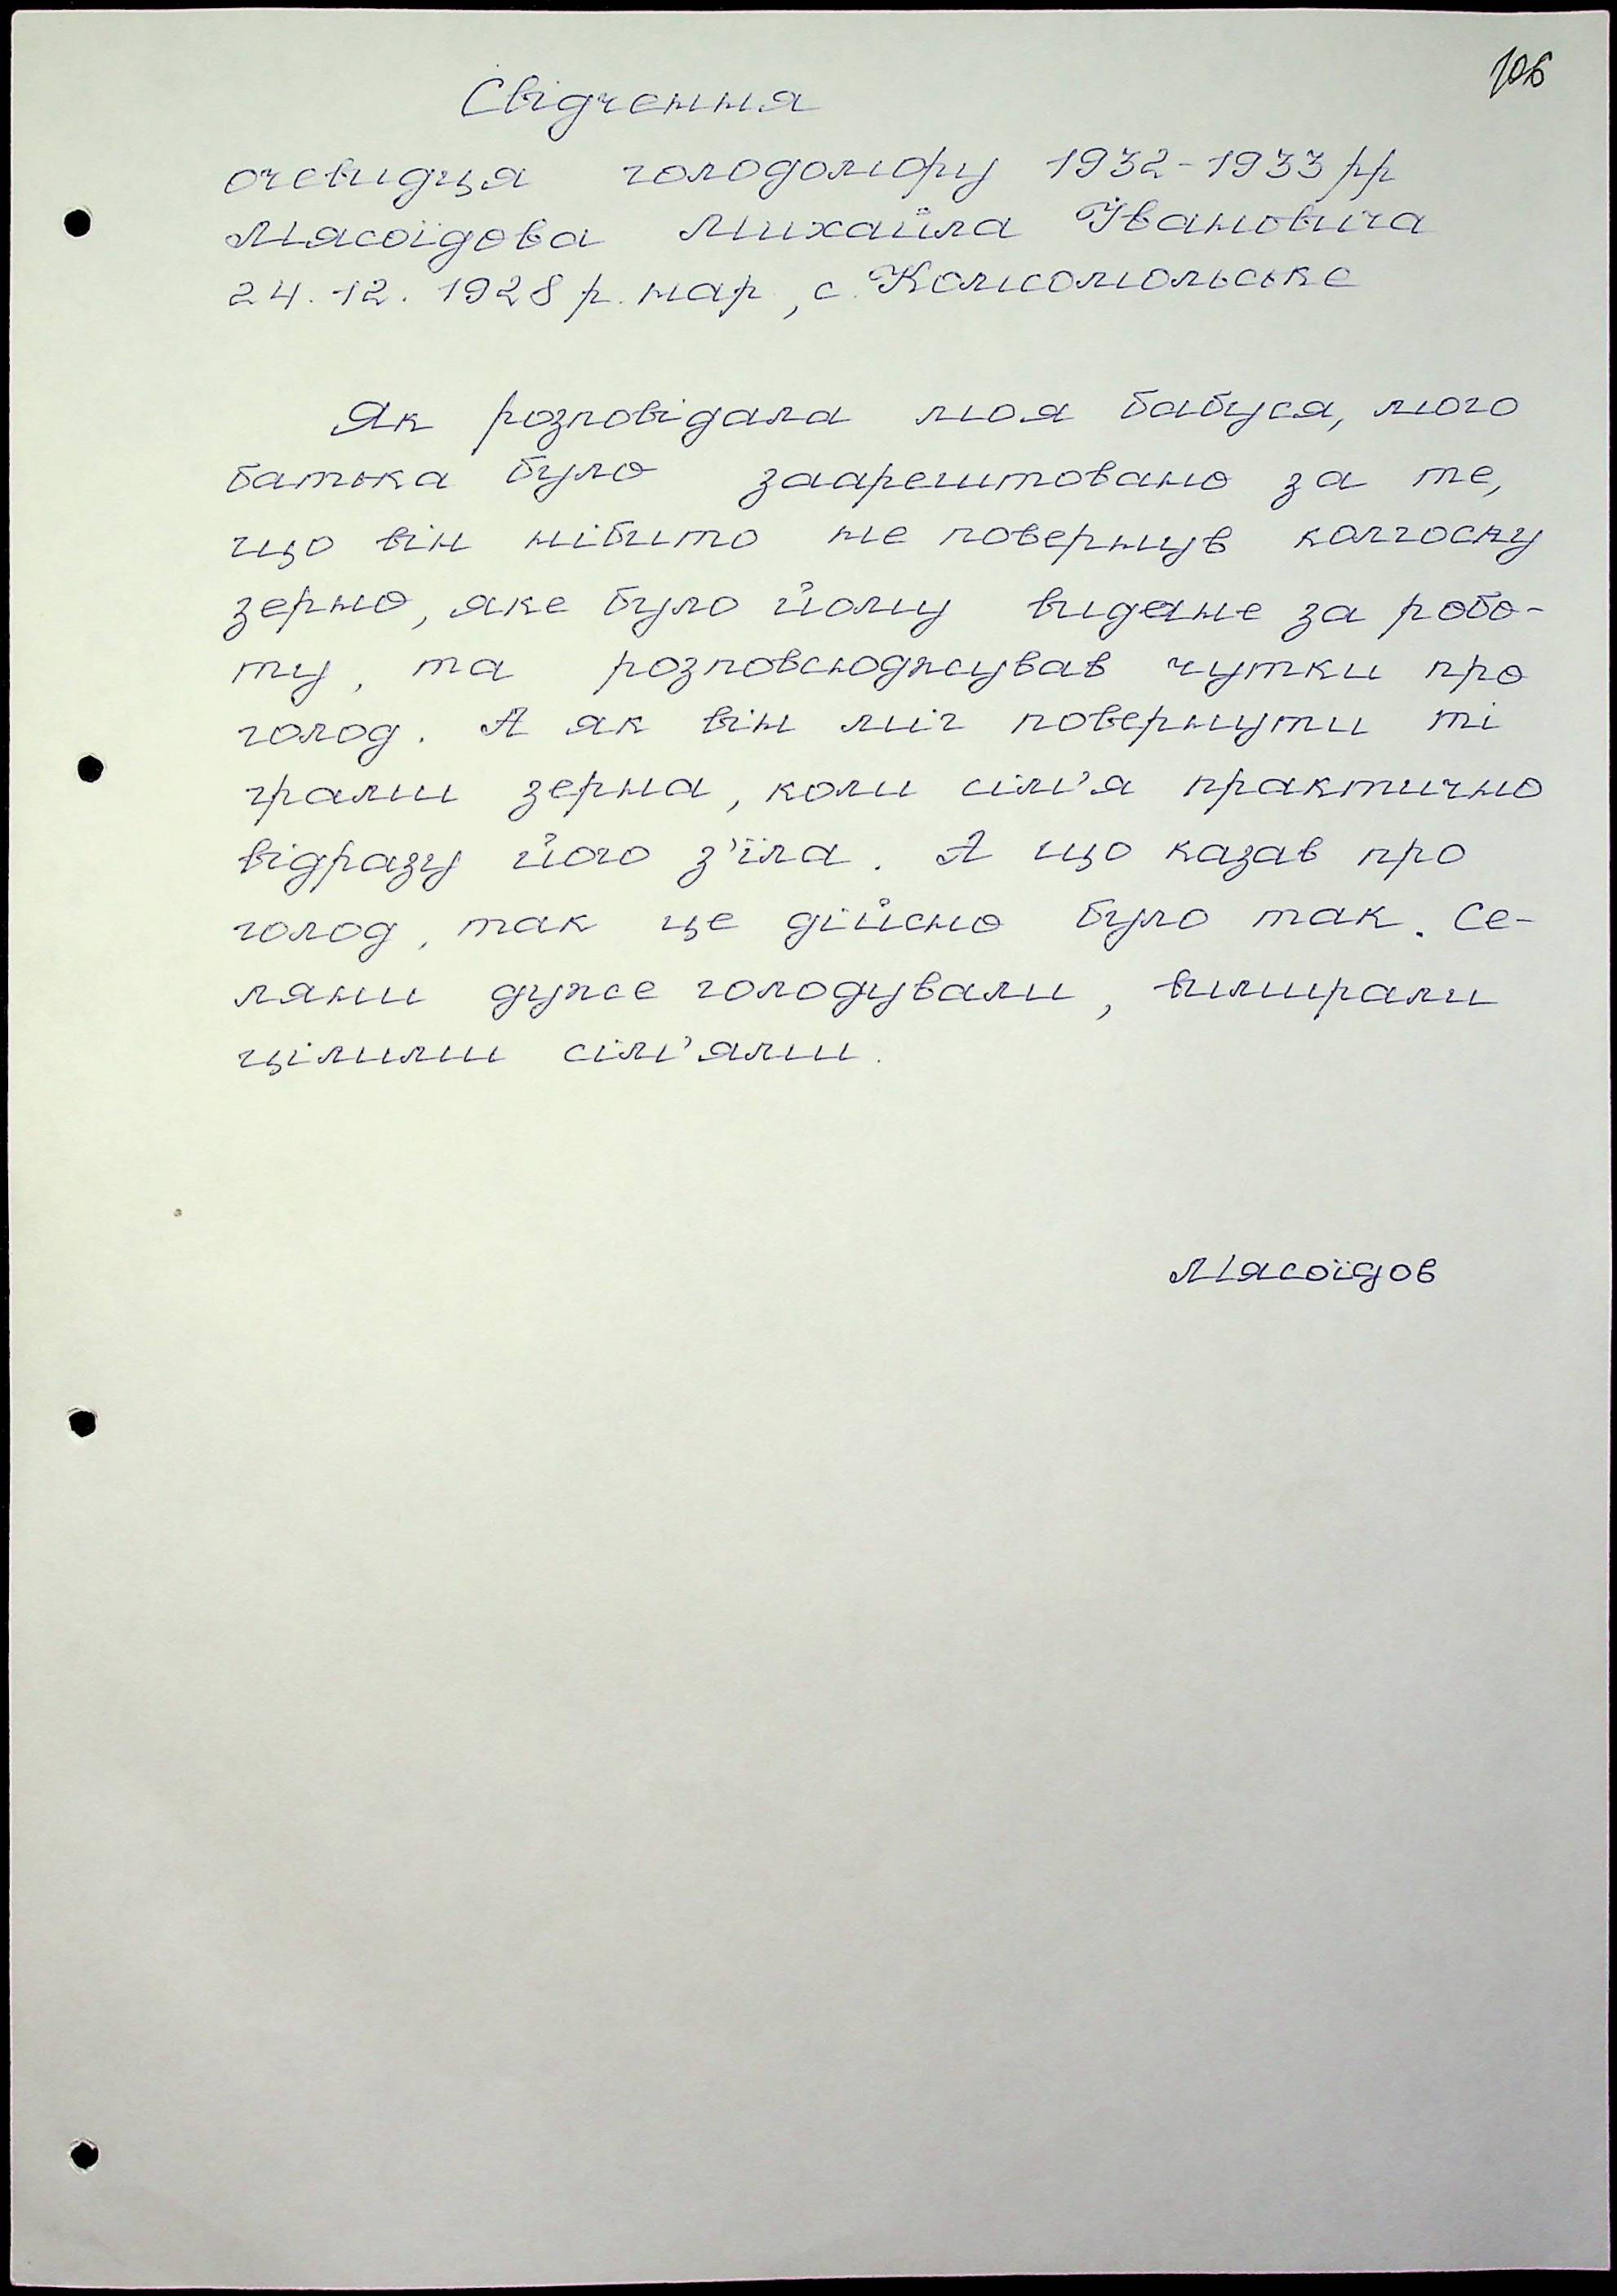 106
Свідчення
очевидця голодомору 1932-1933 рр
Мясоїдова Михайла Івановича
24.12.1928 р. нар, с. Комсомольське
Як розповідала моя бабуся, мого
батька було заарештовано за те,
що він нібито не повернув колгоспу
зерно, яке було йому видане за робо-
ту, та розповсюджував чутки про
голод. А як він міг повернути ті
грами зерна, коли сім'я практично
відразу його з'їла. А що казав про
голод, так це дійсно було так. Се-
ляни дуже голодували, вимирали
цілими сім'ями.
Мясоїдов